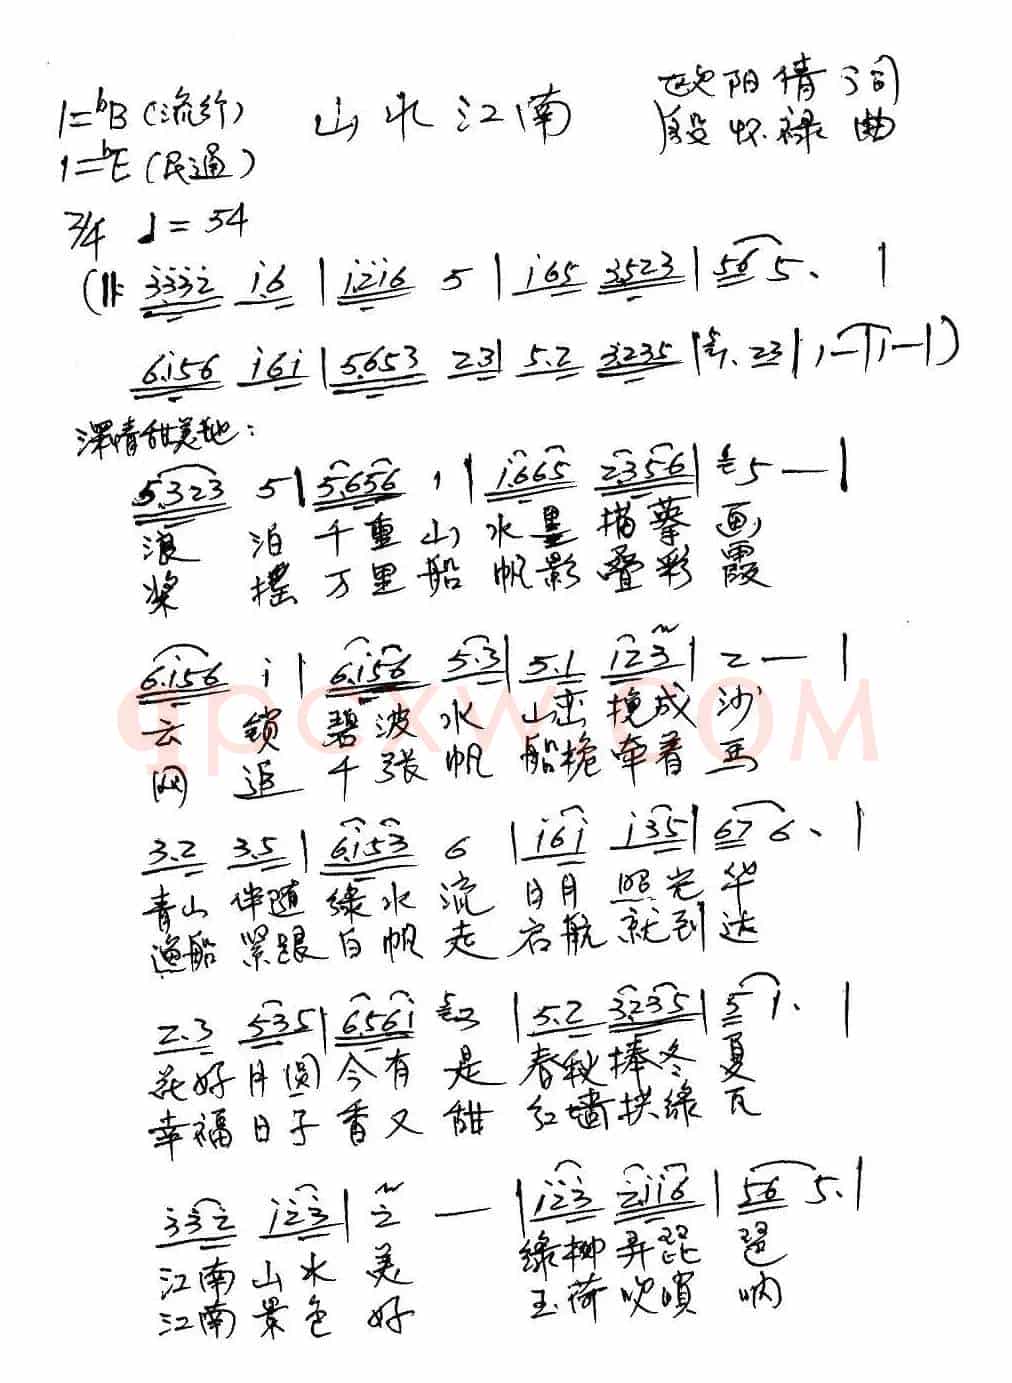 1=ᵇB(流行) 山水江南 欧阳倩词
1=ᵇE(民通) 段怀禄曲
2/4 ♩=54
(‖: 3332 1.6 | 1.216 5 | 165 3.523 | 56 5. |
6.156 161 | 5.653 2.3 | 5.2 3.235 | 1. 23 | 1 — | 1 — | )
深情甜美地:
5.323 5 | 5.656 1 | 1.665 2356 | 5 — |
浪 泊 千重山 水墨 描摹 画
桨 摇 万里船 帆影 叠彩 霞
6.156 1 | 6.156 5.3 | 5.1 123 | 2 — |
云 锁 碧波水 山峦 挽成 沙
网 追 千张帆 船桅 牵着 马
3.2 3.5 | 6.153 6 | 161 135 | 67 6. |
青山 伴随 绿水 流 日月 照光 华
渔船 紧跟 白帆 走 启航 就到 达
2.3 535 | 6.561 3 | 5.2 3.235 | 5 1. |
花好月圆 今有 是 春秋捧冬 夏
幸福日子 香又 甜 红墙拱绿 瓦
332 123 | 2 — | 123 2116 | 56 5. |
江南山水 美 绿柳弄琵 琶
江南景色 好 玉荷吹唢 呐
qpcxw.COM